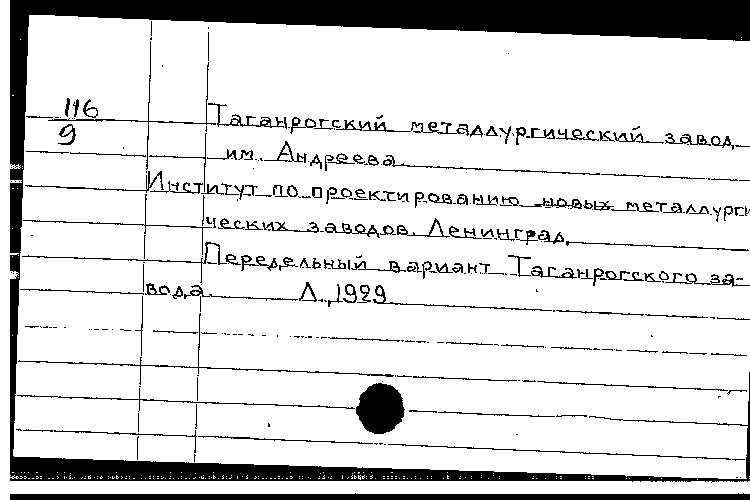 116
9
Таганрогский металлургический завод
им. Андреева
Институт по проектированию новых металлурги
ческих заводов. Ленинград.
Передельный вариант Таганрогского за-
вода Л., 1929